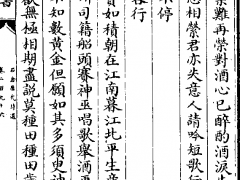 難再榮對酒心已醉酌酒淚
相縈君亦失意人請吟短歌行
不停
客行
如積朝在江南暮江北平生
司籍船頭賽神巫唱歌舉酒
知數黄金但願如其多須臾
無極相期盡說莫種田種田